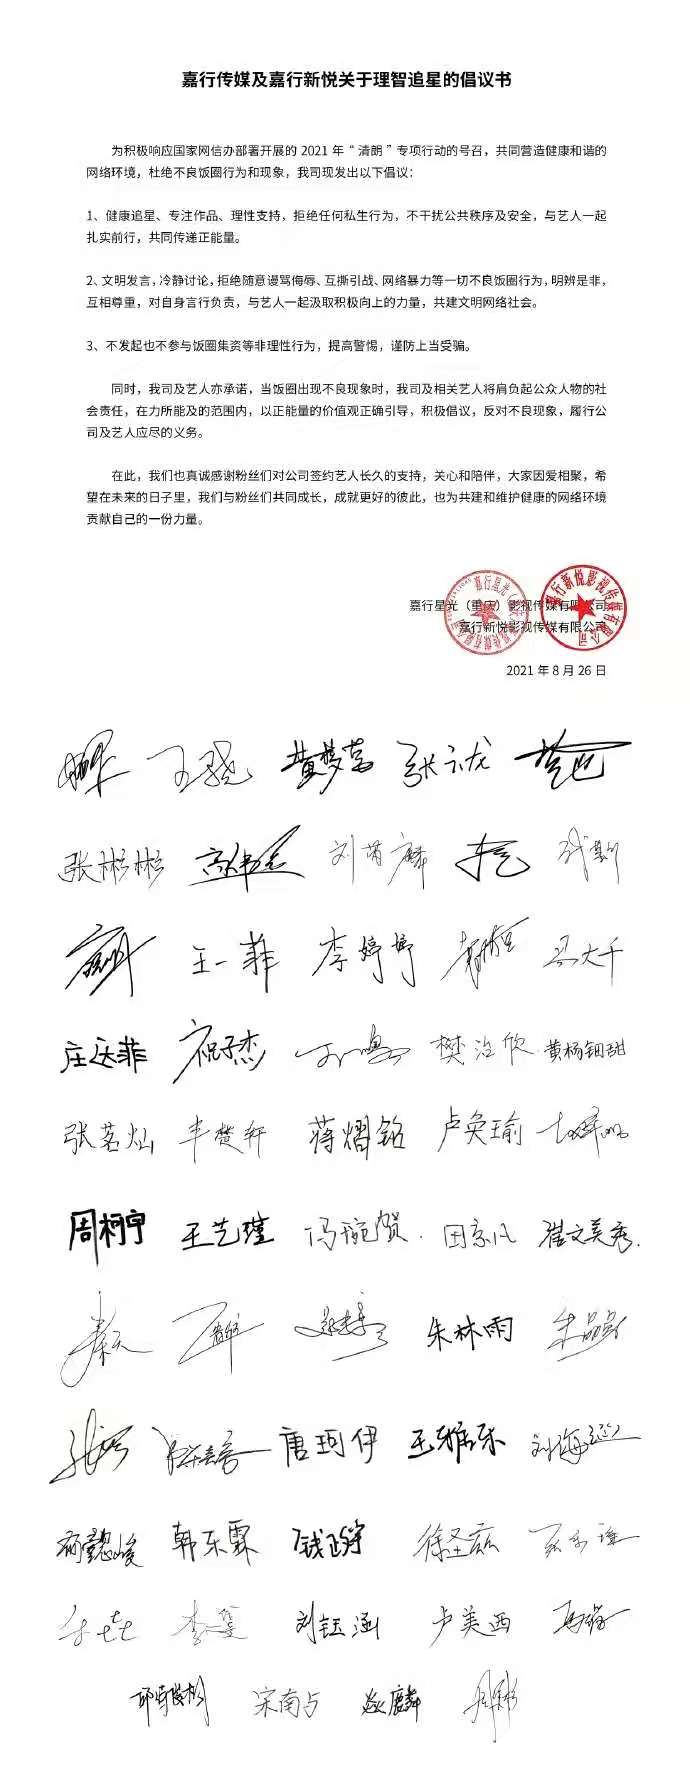 嘉行传媒及嘉行新悦关于理智追星的倡议书
为积极响应国家网信办部署开展的 2021 年“清朗”专项行动的号召，共同营造健康和谐的
网络环境，杜绝不良饭圈行为和现象，我司现发出以下倡议：
1、健康追星、专注作品、理性支持，拒绝任何私生行为，不干扰公共秩序及安全，与艺人一起
扎实前行，共同传递正能量。
2、文明发言，冷静讨论，拒绝随意谩骂侮辱、互撕引战、网络暴力等一切不良饭圈行为，明辨是非，
互相尊重，对自身言行负责，与艺人一起汲取积极向上的力量，共建文明网络社会。
3、不发起也不参与饭圈集资等非理性行为，提高警惕，谨防上当受骗。
同时，我司及艺人亦承诺，当饭圈出现不良现象时，我司及相关艺人将肩负起公众人物的社
会责任，在力所能及的范围内，以正能量的价值观正确引导，积极倡议，反对不良现象，履行公
司及艺人应尽的义务。
在此，我们也真诚感谢粉丝们对公司签约艺人长久的支持，关心和陪伴，大家因爱相聚，希
望在未来的日子里，我们与粉丝们共同成长，成就更好的彼此，也为共建和维护健康的网络环境
贡献自己的一份力量。
嘉行星光（重庆）影视传媒有限公司
嘉行新悦影视传媒有限公司
2021 年 8 月 26 日
王骁 黄梦莹 张云龙
张彬彬 高伟光 刘芮麟
王一菲 李婷婷 马大千
庄达菲 祝子杰 樊治欣 黄杨钿甜
张茗灿 丰楚轩 蒋熠铭 卢奂瑜
周柯宇 王艺瑾 冯琬贺 田京凡 崔文美秀
朱林雨
唐珂伊 王雅乐
韩东霖 钱正宇 徐圣兹
刘钰涵 卢美西
宋南占